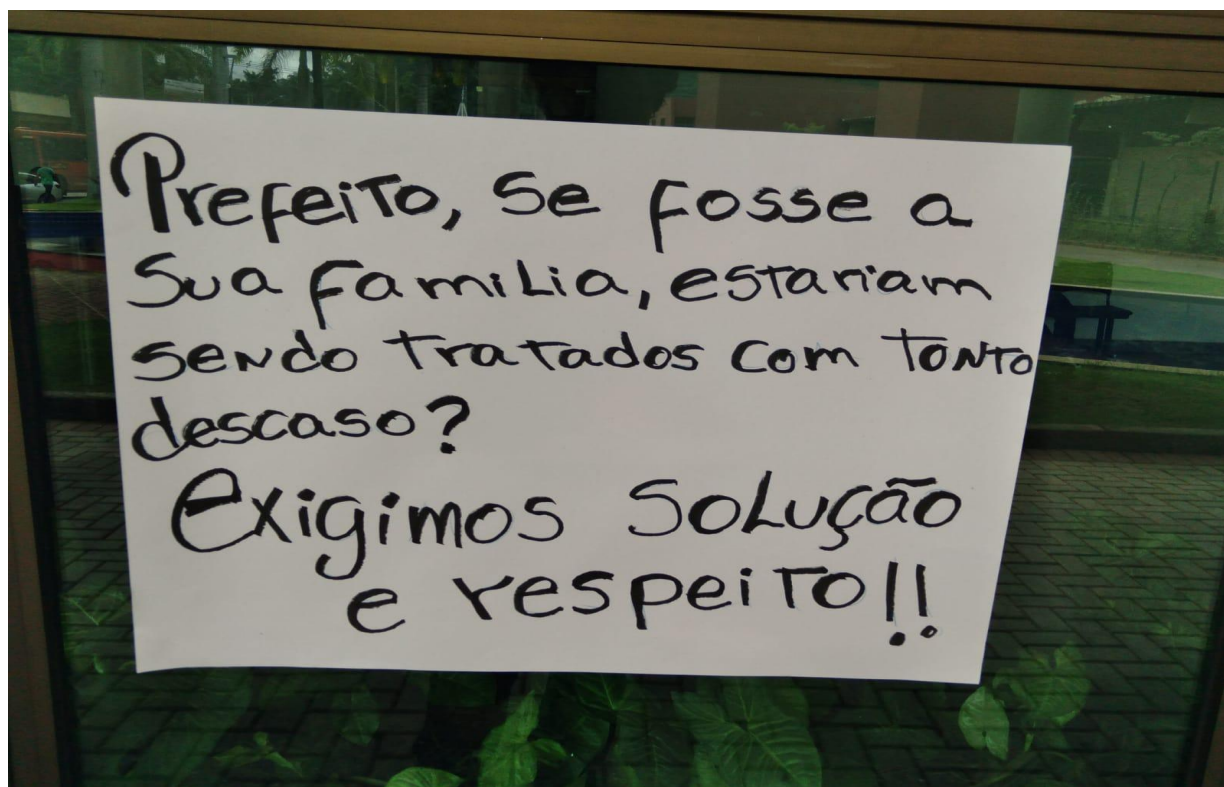 Prefeito, se fosse a
sua familia, estariam
sendo tratados com tonto
descaso?
Exigimos solução
e respeito!!